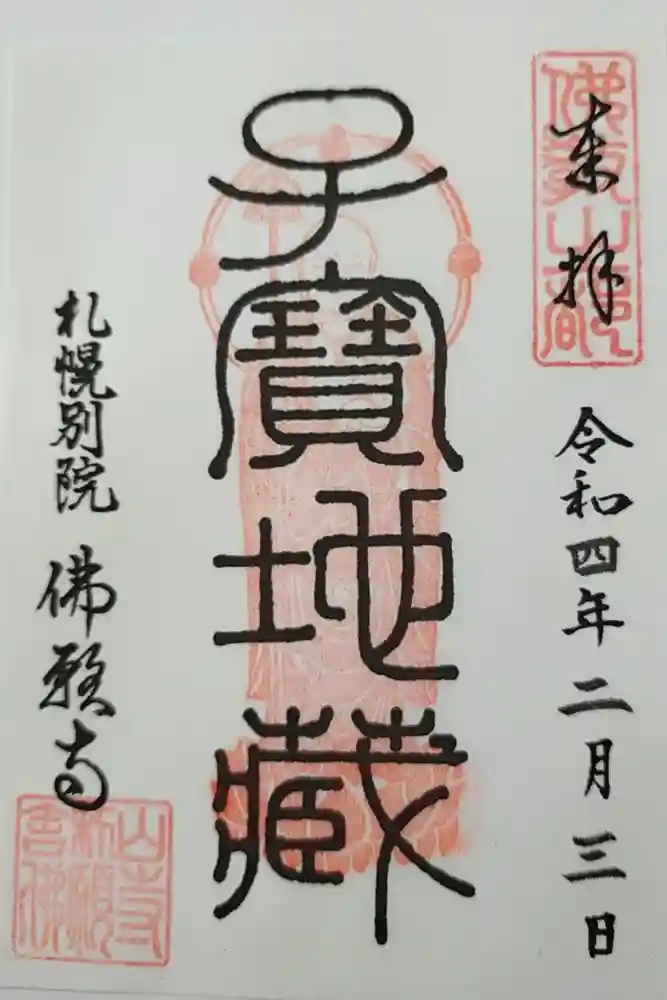 来拝
令和四年二月三日
子寶地藏
札幌別院
佛願寺